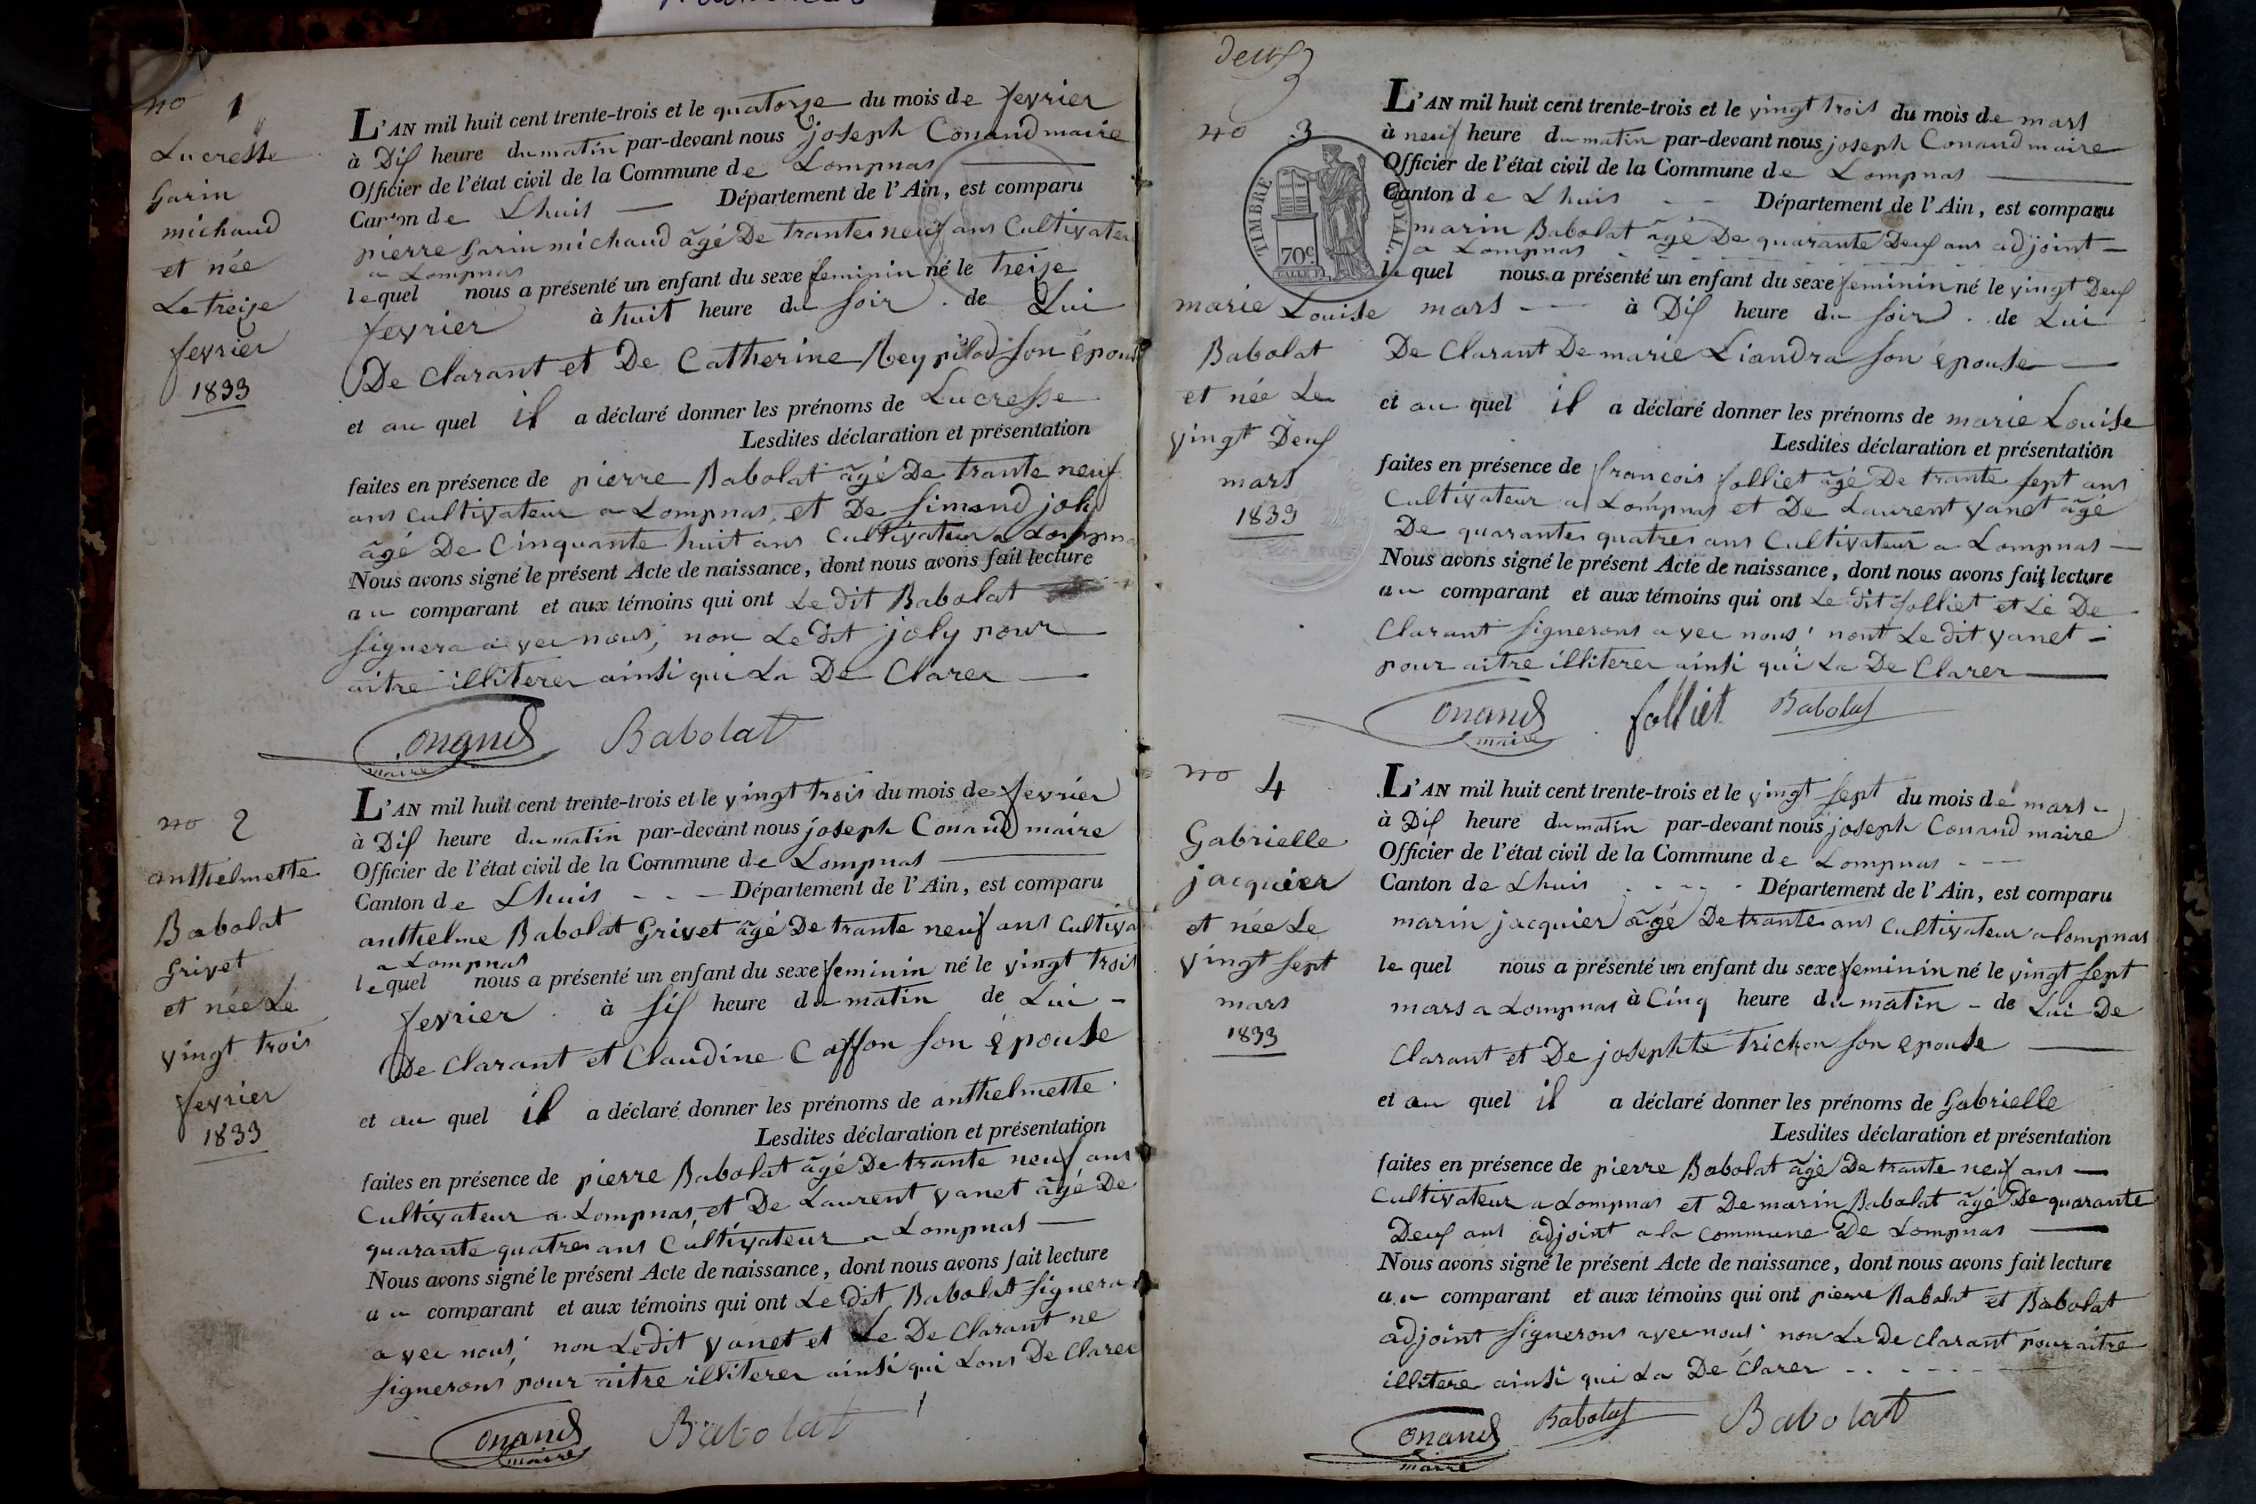 no 1
Lucresse
garin
michaud
et née
Le treize
fevrier
1833
L'AN mil huit cent trente-trois et le quatorze du mois de fevrier
à Dix heure du matin par-devant nous joseph Conand maire
Officier de l'état civil de la Commune de Lompnas
Canton de Lhuis Département de l'Ain, est comparu
pierre garin michaud âgé De trante neuf ans Cultivateur
a Lompnas
lequel nous a présenté un enfant du sexe feminin né le treize
fevrier à huit heure du soir de Lui
De Clarant et De Catherine Rey pilod son épouse
et au quel il a déclaré donner les prénoms de Lucresse
Lesdites déclaration et présentation
faites en présence de pierre Babolat âgé De trante neuf
ans cultivateur a Lompnas, et De Simond joly
âgé De Cinquante huit ans Cultivateur a Lompnas
Nous avons signé le présent Acte de naissance, dont nous avons fait lecture
au comparant et aux témoins qui ont Le dit Babolat
signera avec nous, non Le dit joly pour
aitre illiterer ainsi qui La De Clarer
Conand Babolat
maire
no 2
anthelmette
Babolat
grivet
et née Le
vingt trois
fevrier
1833
L'AN mil huit cent trente-trois et le vingt trois du mois de fevrier
à Dix heure du matin par-devant nous joseph Conand maire
Officier de l'état civil de la Commune de Lompnas
Canton de Lhuis - - - Département de l'Ain, est comparu
anthelme Babolat Grivet âgé De trante neuf ans Cultiva
a Lompnas
lequel nous a présenté un enfant du sexe feminin né le vingt trois
fevrier à six heure du matin de Lui -
De Clarant et Claudine Caffon son épouse
et au quel il a déclaré donner les prénoms de anthelmette
Lesdites déclaration et présentation
faites en présence de pierre Babolat âgé De trante neuf ans
Cultivateur a Lompnas, et De Laurent vanet âgé De
quarante quatres ans Cultivateur a Lompnas
Nous avons signé le présent Acte de naissance, dont nous avons fait lecture
au comparant et aux témoins qui ont Le dit Babolat signera
avec nous, non Le dit vanet et Le De Clarant ne
signerons pour aitre illiterer ainsi qui Lons De Clarer
Conand Babolat
maire
deux
no 3
TIMBRE ROYAL.
70c
marie Louise
Babolat
et née Le
vingt Deux
mars
1833
L'AN mil huit cent trente-trois et le vingt trois du mois de mars
à neuf heure du matin par-devant nous joseph Conand maire
Officier de l'état civil de la Commune de Lompnas
Canton de Lhuis - - Département de l'Ain, est comparu
marin Babolat âgé De quarante Deux ans adjoint -
a Lompnas
le quel nous a présenté un enfant du sexe feminin né le vingt Deux
mars - à Dix heure du soir de Lui
De Clarant De marie Liandra son épouse
et au quel il a déclaré donner les prénoms de marie Louise
Lesdites déclaration et présentation
faites en présence de francois folliet âgé De trante sept ans
Cultivateur a Lompnas et De Laurent vanet âgé
De quarantes quatres ans Cultivateur a Lompnas -
Nous avons signé le présent Acte de naissance, dont nous avons fait lecture
au comparant et aux témoins qui ont Le dit folliet et Le De
Clarant signerons avec nous, nont Le dit vanet -
pour aitre illiterer ainsi qui La De Clarer
Conand folliet Babolat
maire
no 4
Gabrielle
jacquier
et née Le
vingt sept
mars
1833
L'AN mil huit cent trente-trois et le vingt sept du mois de mars -
à Dix heure du matin par-devant nous joseph Conand maire
Officier de l'état civil de la Commune de Lompnas - -
Canton de Lhuis - - - - Département de l'Ain, est comparu
marin jacquier âgé De trante ans Cultivateur a lompnas
le quel nous a présenté un enfant du sexe feminin né le vingt sept
mars a Lompnas à Cinq heure du matin - de Lui De
Clarant et De josephte trichon son epouse
et au quel il a déclaré donner les prénoms de Gabrielle
Lesdites déclaration et présentation
faites en présence de pierre Babolat âgé De trante neuf ans
Cultivateur a Lompnas et De marin Babolat âgé De quarante
Deux ans adjoint a la commune De Lompnas
Nous avons signé le présent Acte de naissance, dont nous avons fait lecture
au comparant et aux témoins qui ont pierre Babolat et Babolat
adjoint signerons avec nous non Le De Clarant pour aitre
illitere ainsi qui La De Clarer - - - -
Conand Babolat Babolat
maire